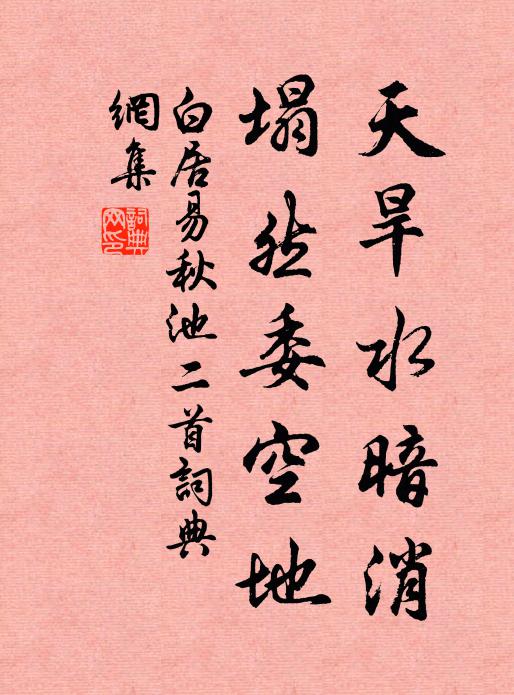 天旱水暗消
塌然委空地
白居易秋池二首詞典
網集
詞典網印